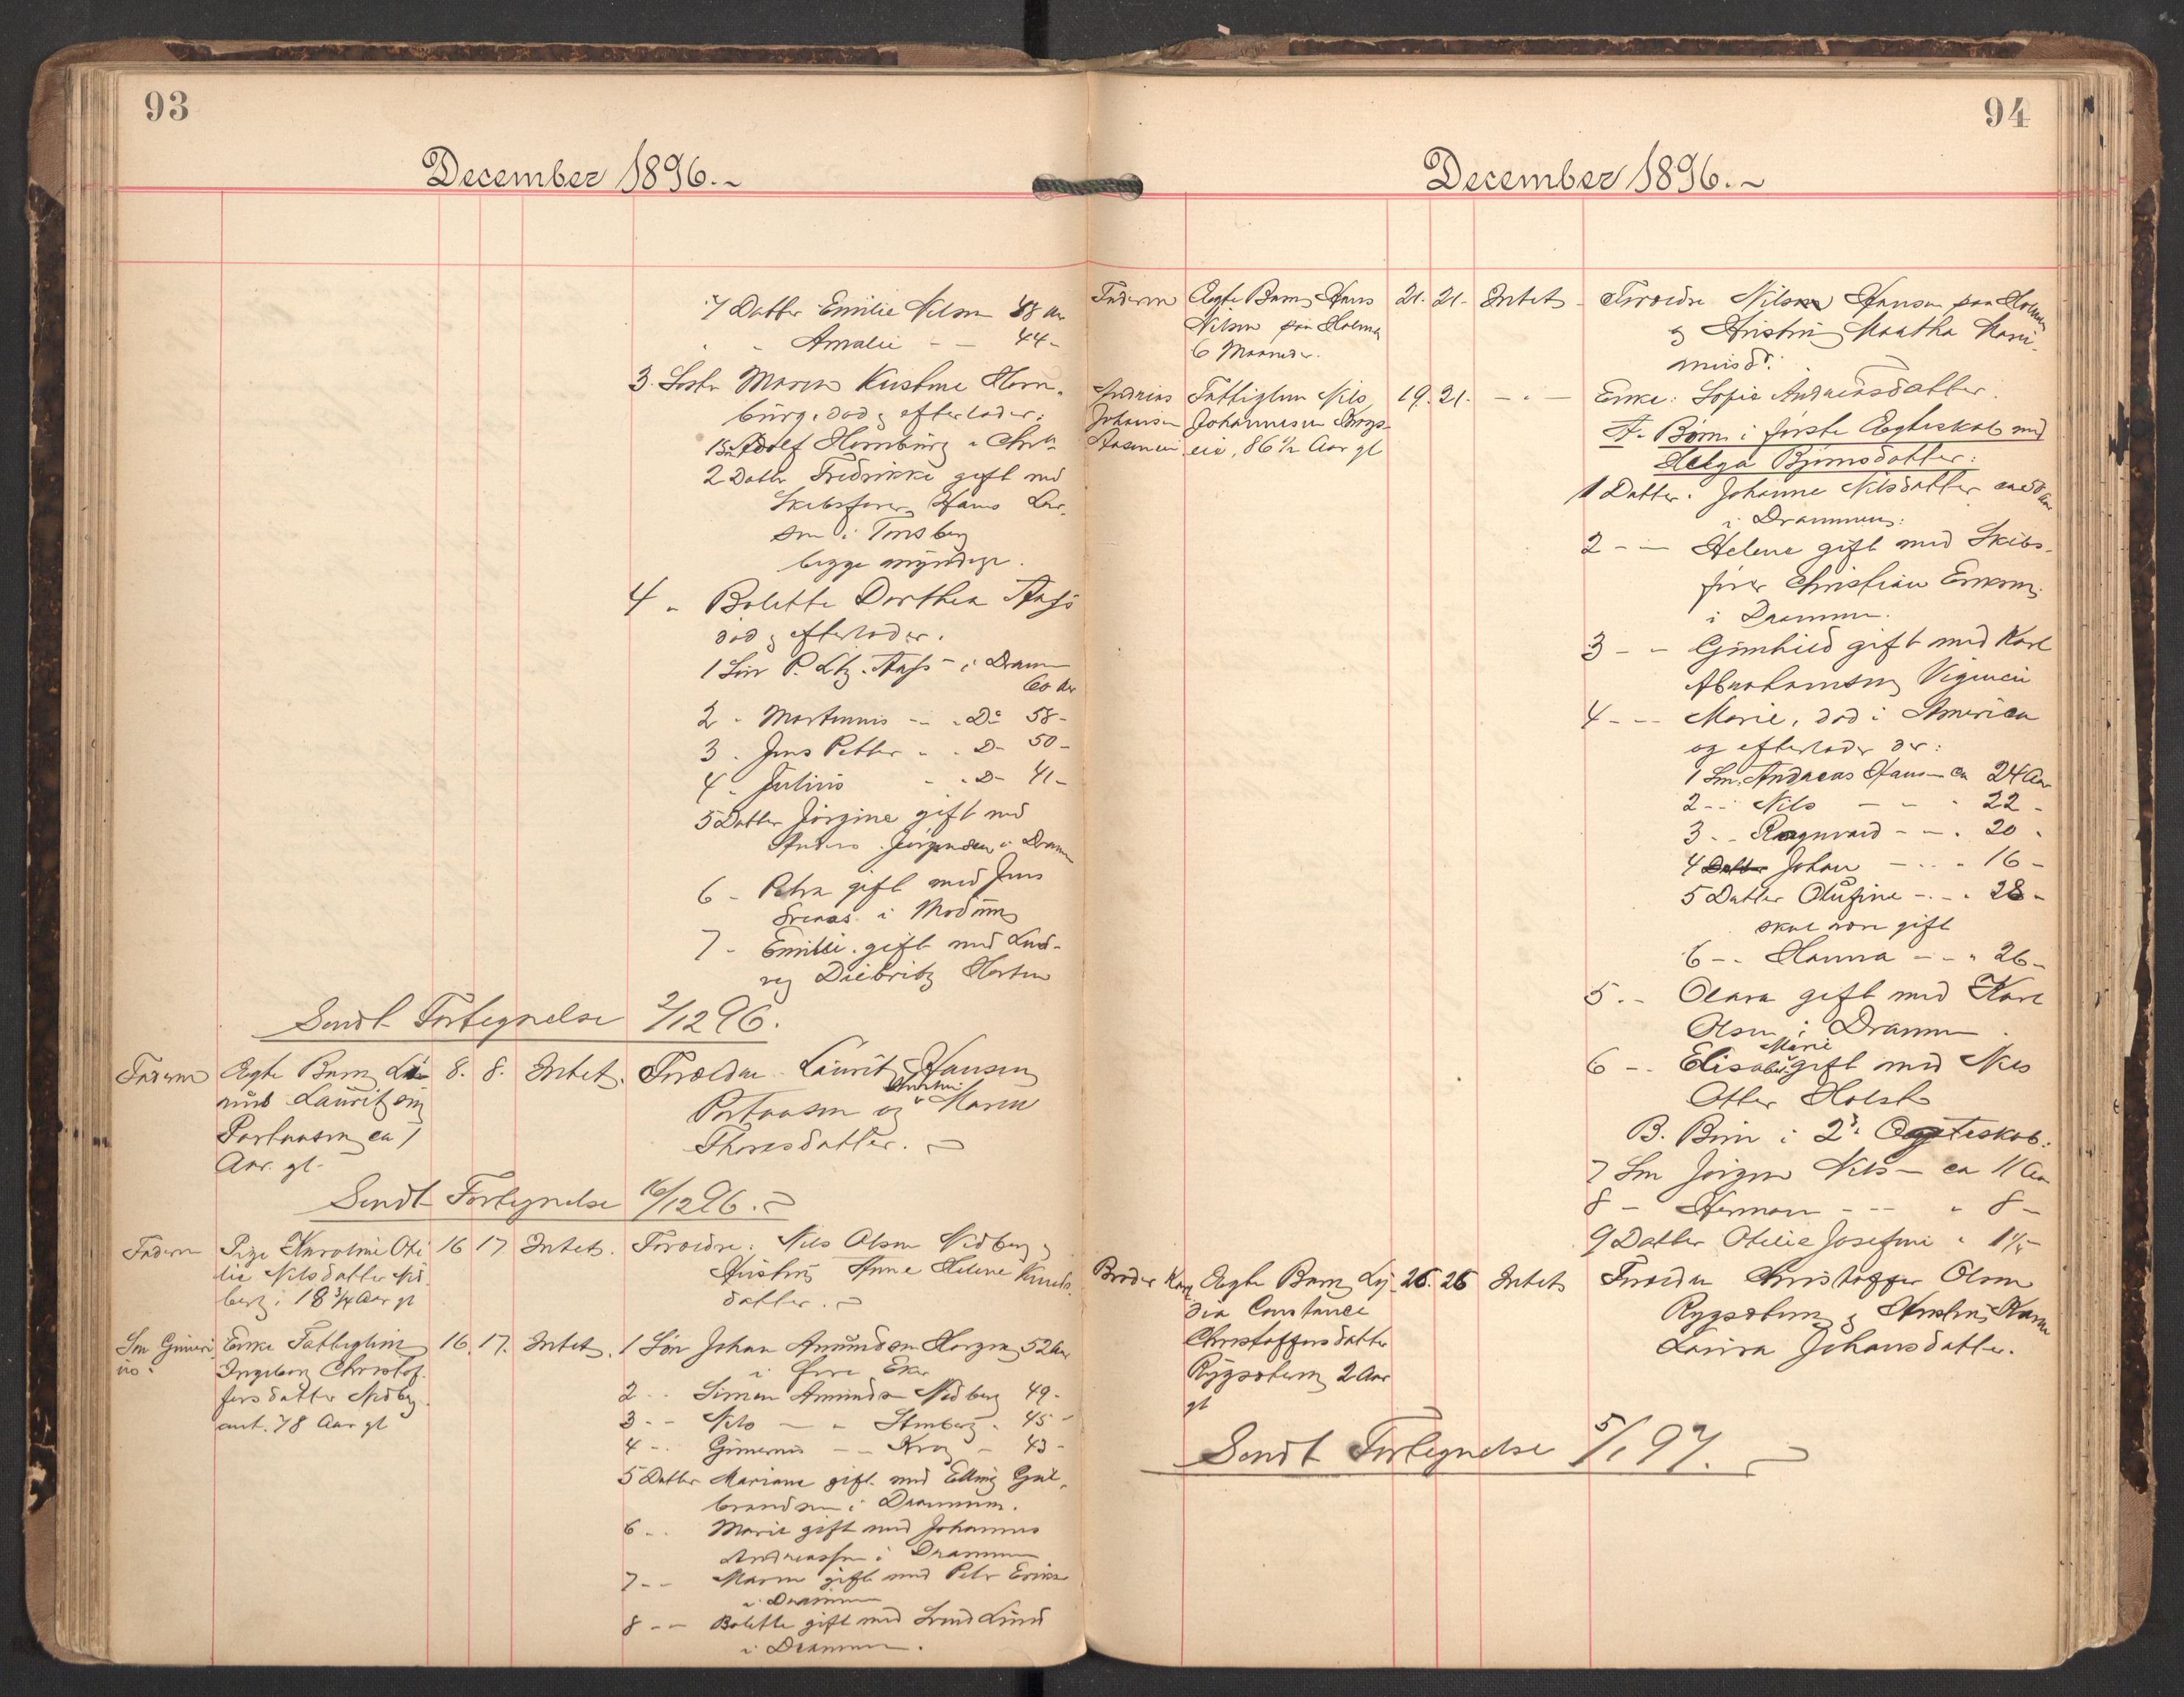 93
December 1896.
7 Datter Emilie Nilsen 48 Aar
" - Amalie - - 44 -
3. Søster Maren Kirstine Horn-
burg, død & efterlader:
1 Søn Adolf Hornburg i Chra
2 Datter Fredrikke gift med
Skibsfører Hans Lar-
sen i Tønsberg
begge myndige.
4 " Bolette Dorthea Aass
død & efterlader.
1 Søn P. Ltz. Aass - i Dramm
60 Aar
2 - Martinius - - Do 58 -
3 - Jens Petter - - D- 50 -
4 - Julius - - D- 41 -
5 Datter Jørgine gift med
Anders Jørgensen i Dramm
6 - Petra gift med Jens
i Modum
7 - Emilie gift med Lud-
vig Diebritz Horten
Sendt Fortegnelse 2/12 96.
Faderen Ægte Barn
Lauritzen 8. 8. Intet. Forældre Laurits Hansen
Portaasen ca 1 Portaasen og Hustru Maren
Aar gl. Thoresdatter.
Sendt Fortegnelse 16/12 96.
Faderen Pige Karoline Oti- 16 17 Intet. Forældre: Nils Olsen Nedberg &
lie Nilsdatter Ned- Hustru Anne Helene Knuds-
berg, 18 3/4 Aar gl datter.
Søn Guneri- Enke Fattiglem 16. 17. Intet. 1 Søn Johan Amundsen Horgen 52 Aar
us. Ingeborg Christof- i Øvre Eker
fersdatter Nedberg 2 - - Simen Amundsen Nedberg 49 -
ant. 78 Aar gl 3 - - Nils - " Stenberg - 45 -
4 - - Gunerius - - Krog - 43 -
5 Datter Mariane gift med Elling Gul-
brandsen i Drammen.
6 - - Marie gift med Johannes
Andreassen i Drammen
7 - - Maren gift med Petr Eriksen
i Drammen
8 - - Bolette gift med Svend Lund
i Drammen.
94
December 1896.
Faderen Ægte Barn Hans 21. 21. Intet Forældre Nils Hansen paa Holmen
Nilsen paa Holmen & Hustru Martha Mari-
6 Maaneder. musd:
Andreas Fattiglem Nils 19. 21. - " - Enke: Sofie Andreasdatter.
Johansen Johannesen Krogs- A. Børn i første Ægteskab med
Aasen eie, 86 1/2 Aar gl Helga Bjørnsdatter:
1 Datter. Johanne Nilsdatter
i Drammen:
2 - - Helene gift med Skibs-
fører Christian Eriksen
i Drammen.
3 - - Gunhild gift med Karl
Abrahamsen
4 - - Marie, død i Amerika
og efterlader der:
1 Søn Andreas Hansen ca 24 Aar
2 - - Nils - - " 22 -
3 - - Ragnvald - - " 20 -
4 Datter Johan - - " 16 -
5 Datter Olufine - - " 28 -
skal være gift
6 - - Hanna - - " 26 -
5. - Olava gift med Karl
Olsen i Drammen.
6 - - Elisabet Marie gift med Nils
Otter Holst
B. Børn i 2det Ægteskab:
7 Søn Jørgen Nils- ca 11 Aar
8 - Herman - - " 8 -
9 Datter Otilie Josefine "
Broder Karl Ægte Barn Ly- 26. 26 Intet Forældre Christoffer Olsen
dia Constance Rygsetern & Hustru Karen
Christoffersdatter Laura Johansdatter.
Rygsetern 2 Aar
gl
Sendt Fortegnelse 5/1 97.